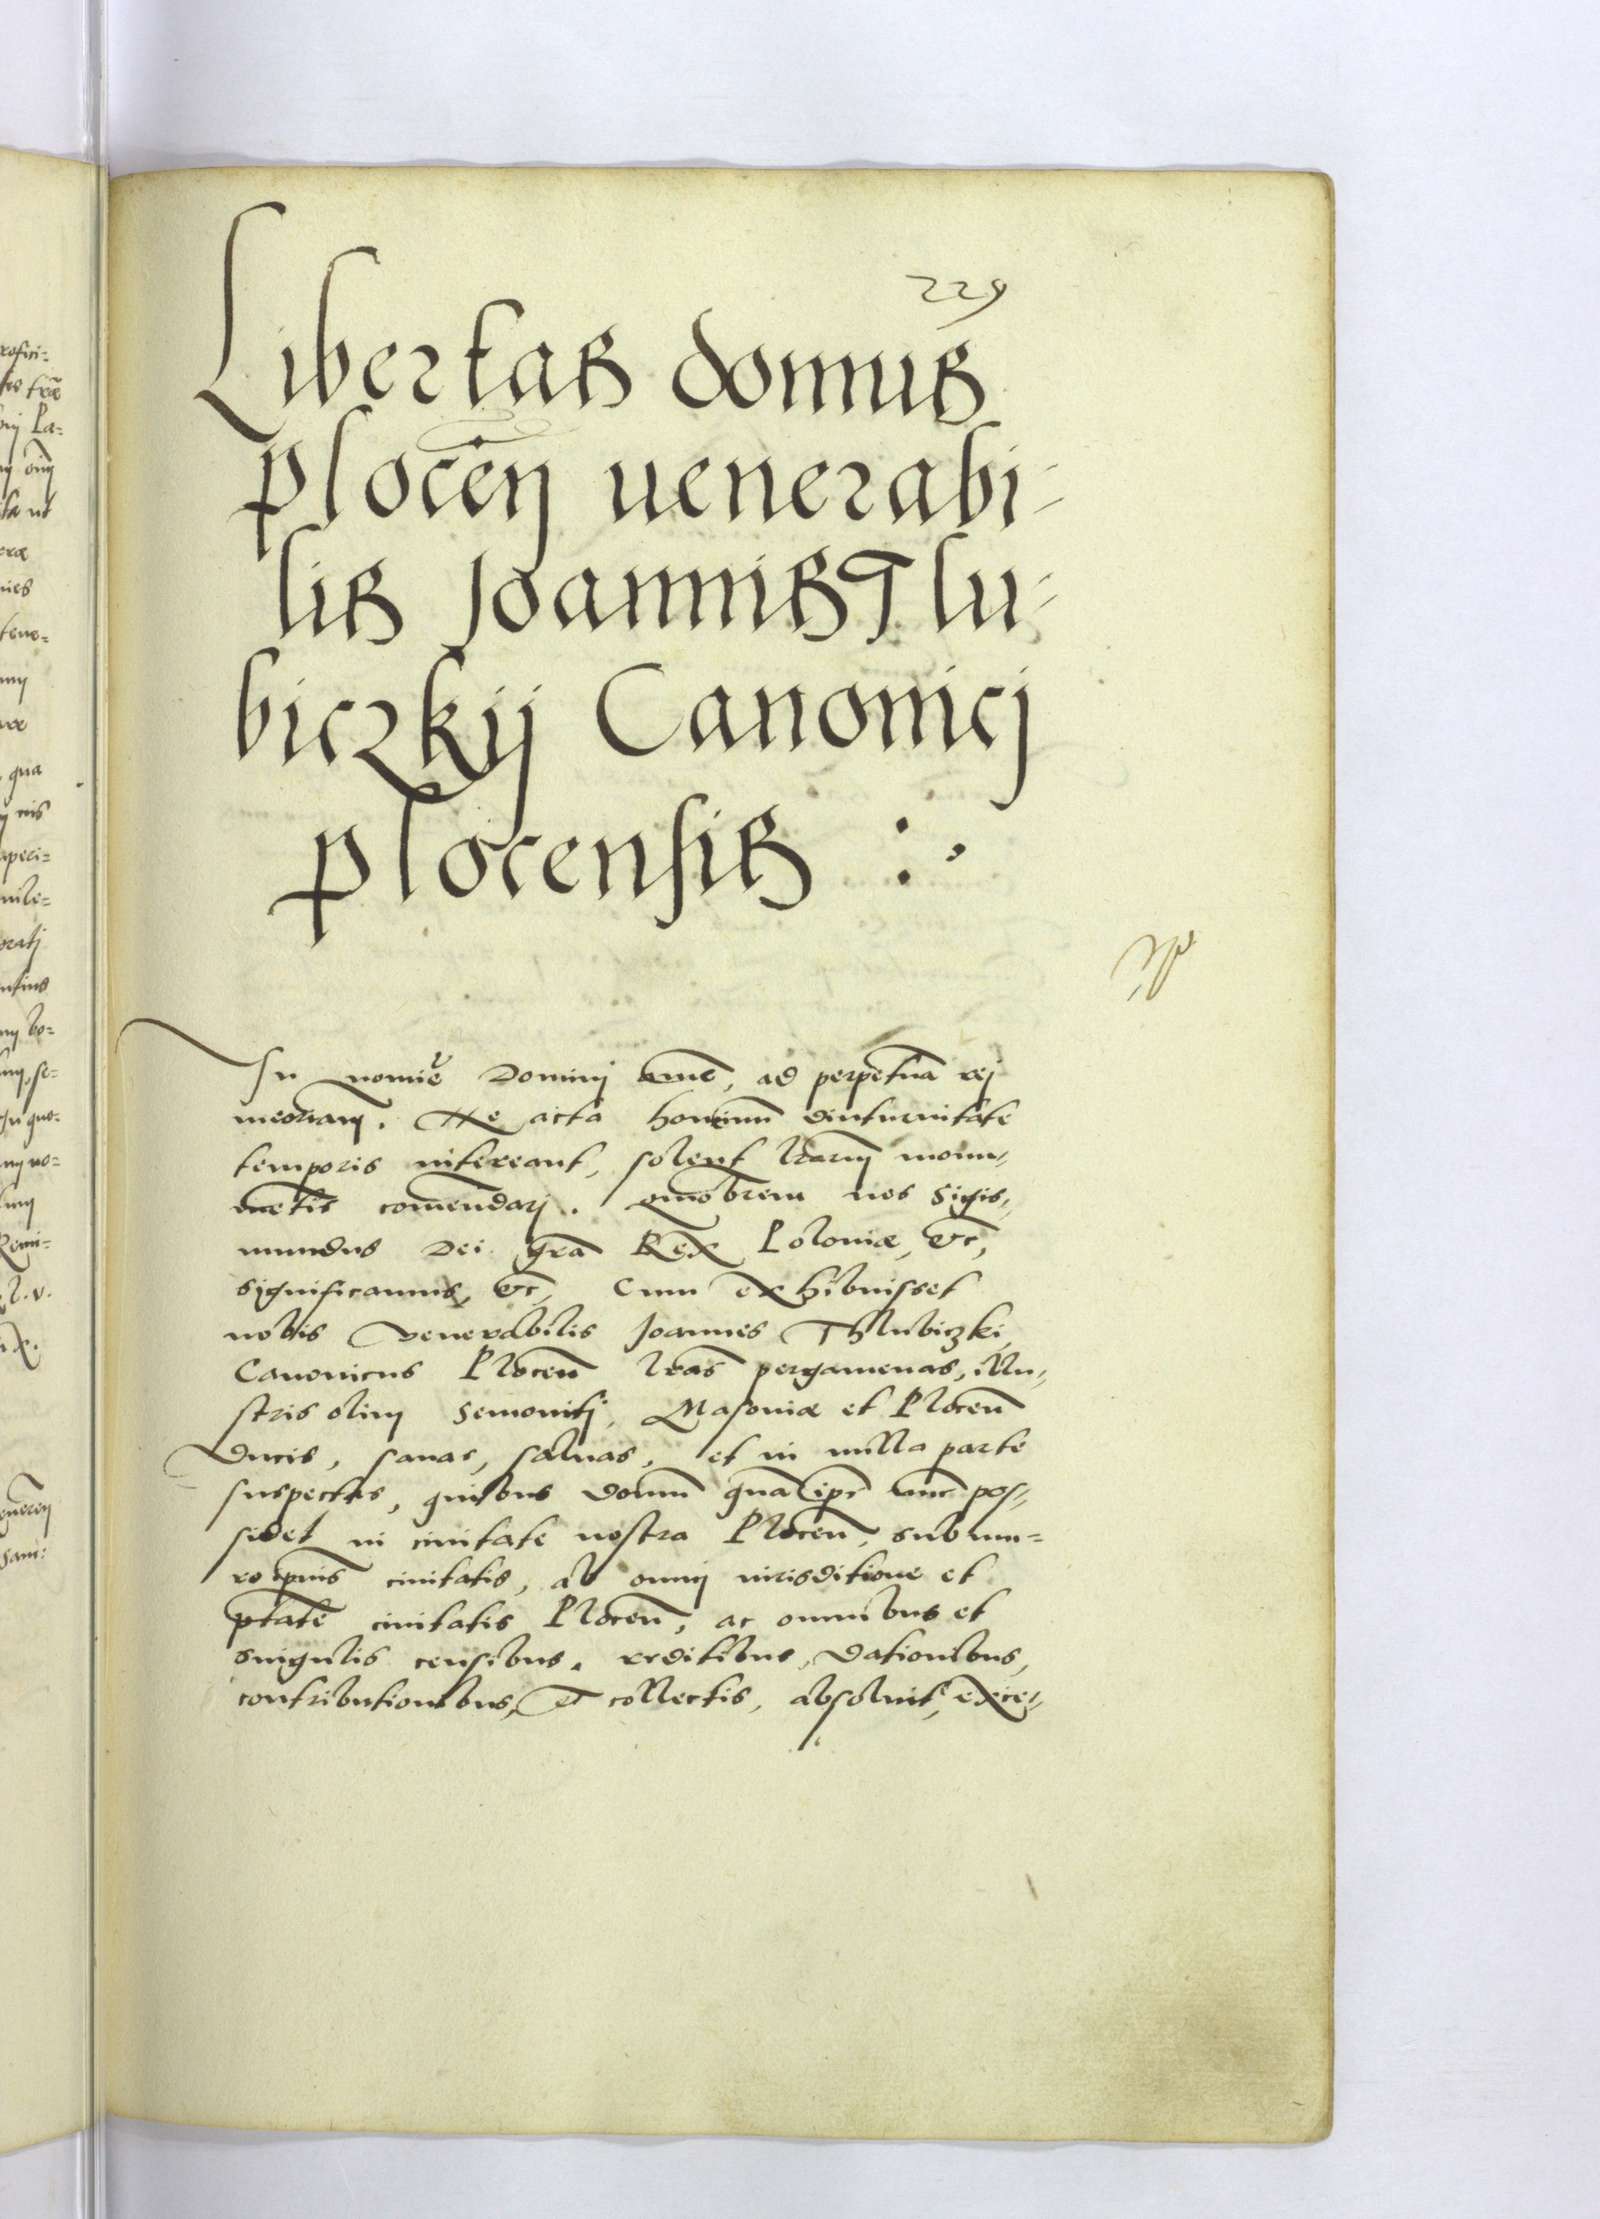 229
Libertas domus
plocen̄ venerabi-
lis Joannis Tlu-
biczkij Canonicj
plocensis :
In nomīe Dominj amē, ad perpetuā rej
meoriam. Ne acta hominū diuturnitate
temporis intereant, solent lrarum monu-
mētis comendarj. Quāobrem nos Sigis-
mundus Dei gr̄a Rex Poloniæ, etc,
significamus, etc, Cum exhibuisset
nobis venerabilis Joannes Thlubiczki
Canonicus Plocen̄ lr̄as pergamenas, illu-
stris olim Semovitj, Masoviæ et Plocen̄
Ducis, sanas, salvas, et in nulla parte
suspectas, quibus domū quā ip̄e nūc pos-
sidet in civitate nostra Plocen̄, sub mu-
ro ip̄ius civitatis, ab omnj iurisditione et
p̄tate civitatis Plocen̄, ac omnibus et
singulis censibus, reditibus, dationibus,
contributionibus, et collectis, absolvit, excē-